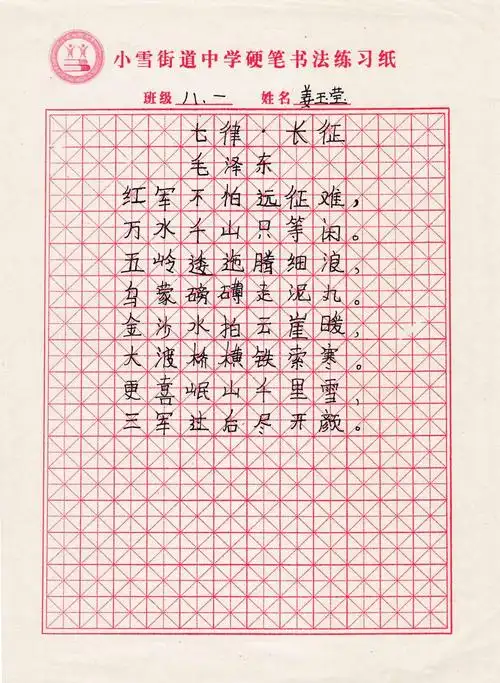 小雪街道中学硬笔书法练习纸
班级 八.一 姓名 姜玉莹
七律·长征
毛泽东
红军不怕远征难，
万水千山只等闲。
五岭逶迤腾细浪，
乌蒙磅礴走泥丸。
金沙水拍云崖暖，
大渡桥横铁索寒。
更喜岷山千里雪，
三军过后尽开颜。